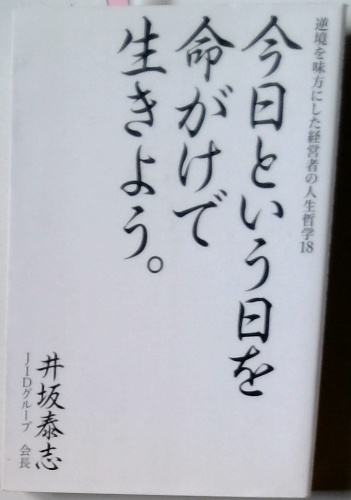 逆境を味方にした経営者の人生哲学18
今日という日を
命がけで
生きよう。
井坂泰志
JIDグループ 会長